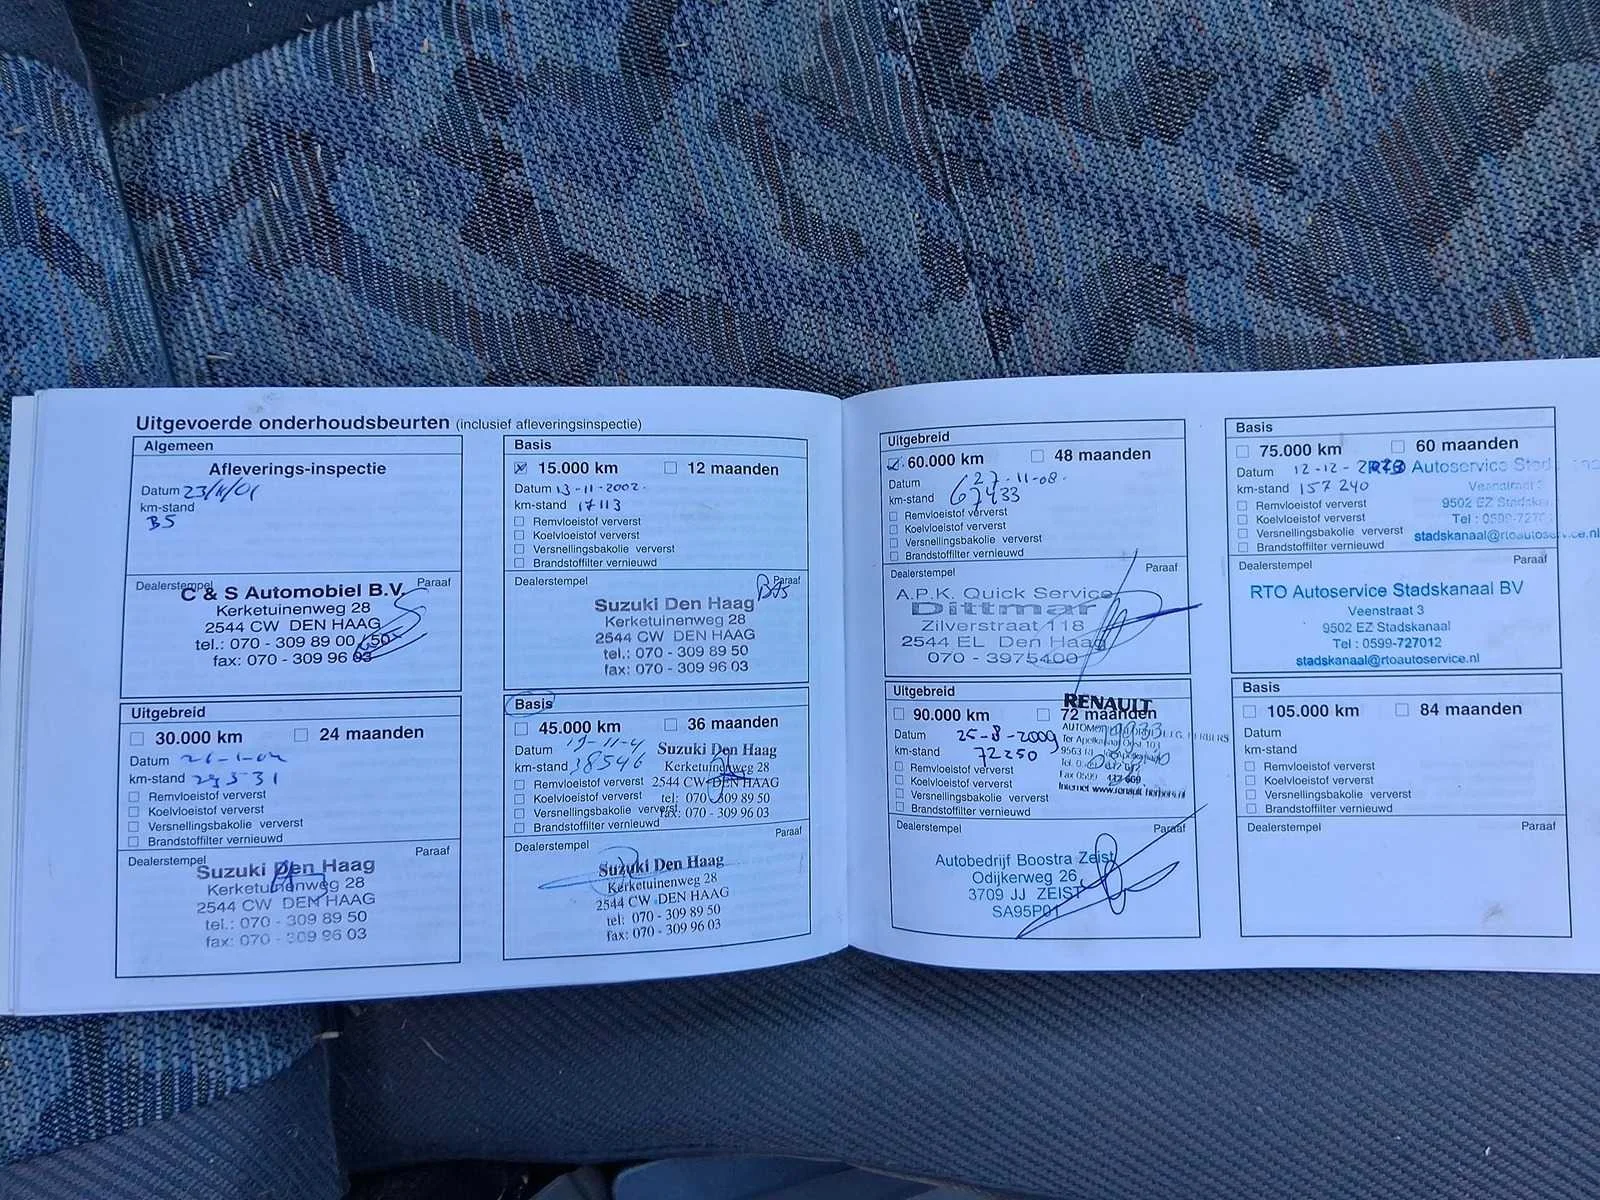 Uitgevoerde onderhoudsbeurten (inclusief afleveringsinspectie)
Algemeen
Afleverings-inspectie
Datum 23/11/01
km-stand
B5
Dealerstempel Paraaf
C & S Automobiel B.V.
Kerketuinenweg 28
2544 CW DEN HAAG
tel.: 070 - 309 89 00
fax: 070 - 309 96 03
Basis
15.000 km 12 maanden
Datum 13-11-2002.
km-stand 17113
Remvloeistof ververst
Koelvloeistof ververst
Versnellingsbakolie ververst
Brandstoffilter vernieuwd
Dealerstempel Paraaf
Suzuki Den Haag
Kerketuinenweg 28
2544 CW DEN HAAG
tel.: 070 - 309 89 50
fax: 070 - 309 96 03
Uitgebreid
30.000 km 24 maanden
Datum
km-stand 29531
Remvloeistof ververst
Koelvloeistof ververst
Versnellingsbakolie ververst
Brandstoffilter vernieuwd
Dealerstempel Paraaf
Suzuki Den Haag
Kerketuinenweg 28
2544 CW DEN HAAG
tel.: 070 - 309 89 50
fax: 070 - 309 96 03
Basis
45.000 km 36 maanden
Datum
km-stand 38546
Remvloeistof ververst
Koelvloeistof ververst
Versnellingsbakolie ververst
Brandstoffilter vernieuwd
Suzuki Den Haag
Kerketuinenweg 28
2544 CW DEN HAAG
tel: 070 - 309 89 50
fax: 070 - 309 96 03
Dealerstempel Paraaf
Suzuki Den Haag
Kerketuinenweg 28
2544 CW DEN HAAG
tel: 070 - 309 89 50
fax: 070 - 309 96 03
Uitgebreid
60.000 km 48 maanden
Datum 27-11-08.
km-stand 67433
Remvloeistof ververst
Koelvloeistof ververst
Versnellingsbakolie ververst
Brandstoffilter vernieuwd
Dealerstempel Paraaf
A.P.K. Quick Service
Dittmar
Zilverstraat 118
2544 EL Den Haag
070 - 3975400
Basis
75.000 km 60 maanden
Datum 12-12-
km-stand 157240
Remvloeistof ververst
Koelvloeistof ververst
Versnellingsbakolie ververst
Brandstoffilter vernieuwd
Autoservice
9502 EZ
Tel : 0599-727
Dealerstempel Paraaf
RTO Autoservice Stadskanaal BV
Veenstraat 3
9502 EZ Stadskanaal
Tel : 0599-727012
stadskanaal@rtoautoservice.nl
Uitgebreid
90.000 km 72 maanden
Datum 25-8-2009
km-stand 72250
Remvloeistof ververst
Koelvloeistof ververst
Versnellingsbakolie ververst
Brandstoffilter vernieuwd
RENAULT
Dealerstempel Paraaf
Autobedrijf Boostra Zeist
Odijkerweg 26
3709 JJ ZEIST
SA95P01
Basis
105.000 km 84 maanden
Datum
km-stand
Remvloeistof ververst
Koelvloeistof ververst
Versnellingsbakolie ververst
Brandstoffilter vernieuwd
Dealerstempel Paraaf